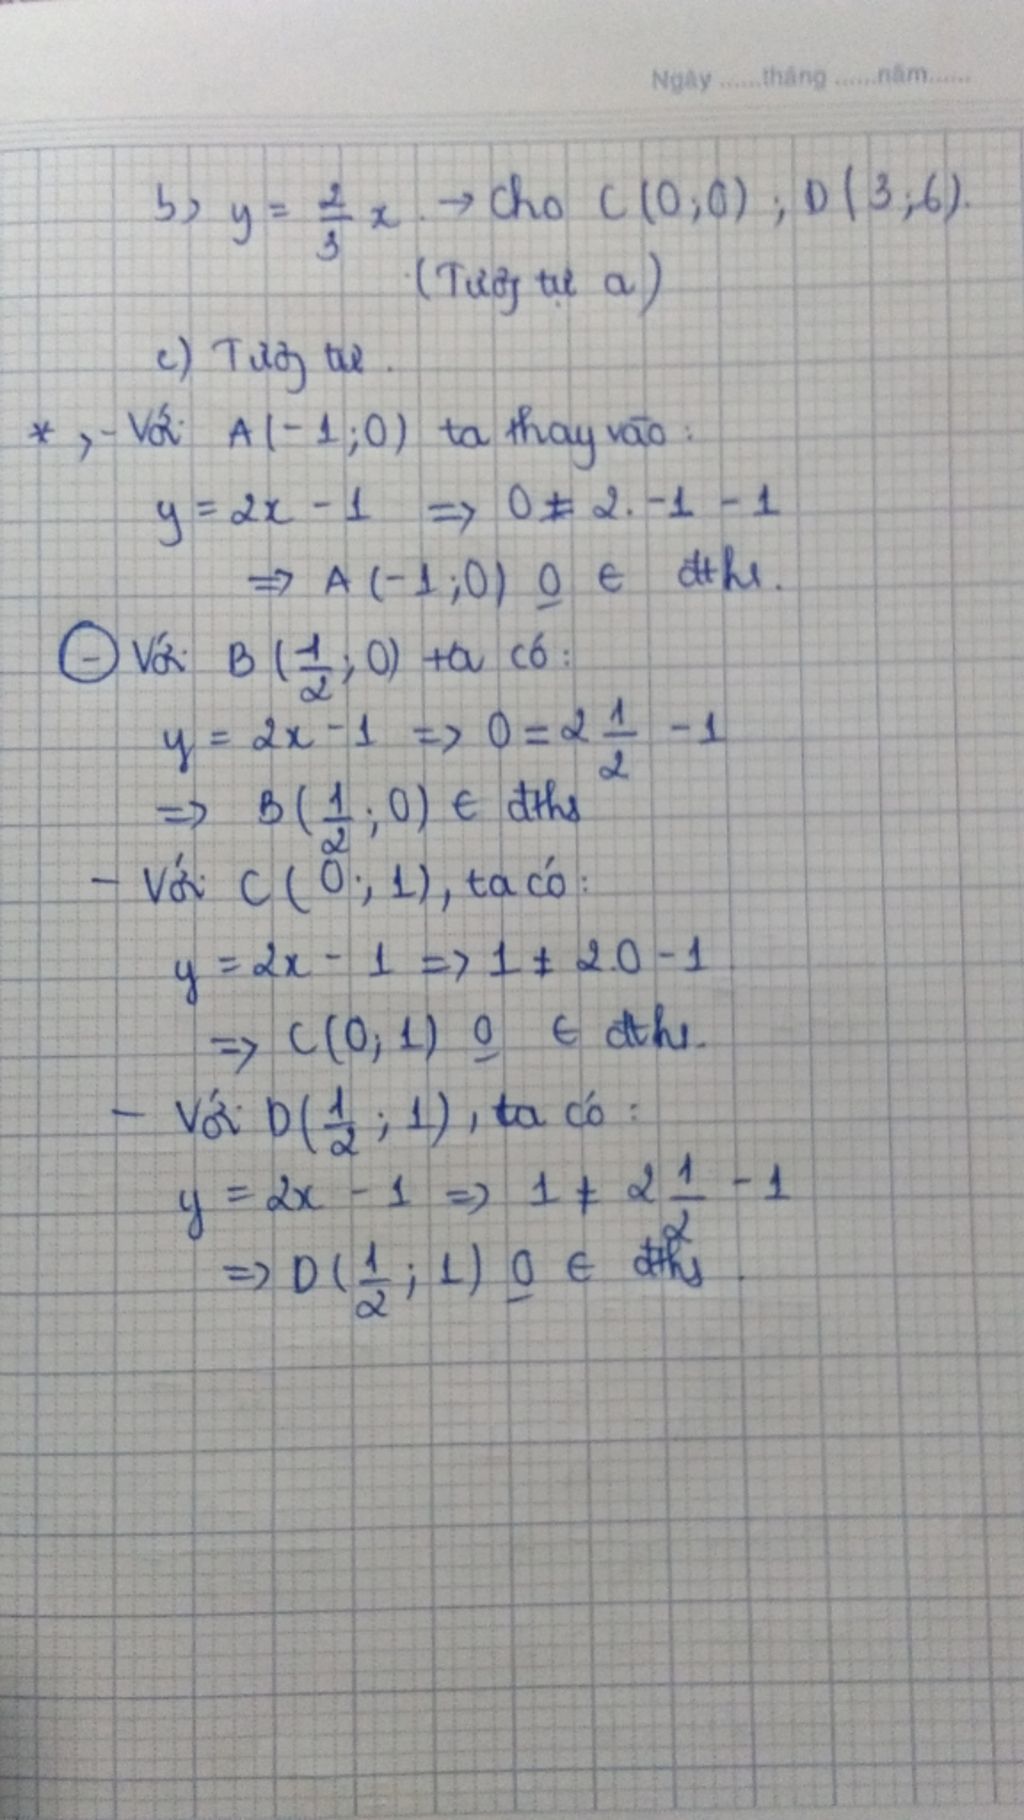 Ngày ......tháng ......năm......
b, y = 2/3 x → Cho C(0;0) ; D(3;6).
(Tương tự a)
c) Tương tự.
* , - Với A(-1;0) ta thay vào:
y = 2x - 1 => 0 ≠ 2. -1 - 1
=> A(-1;0) 0 ∈ đths.
- Với B(1/2;0) ta có:
y = 2x - 1 => 0 = 2 1/2 - 1
=> B(1/2;0) ∈ đths
- Với C(0;1), ta có:
y = 2x - 1 => 1 ≠ 2.0 - 1
=> C(0;1) 0 ∈ đths.
- Với D(1/2;1), ta có:
y = 2x - 1 => 1 ≠ 2 1/2 - 1
=> D(1/2;1) 0 ∈ đths.